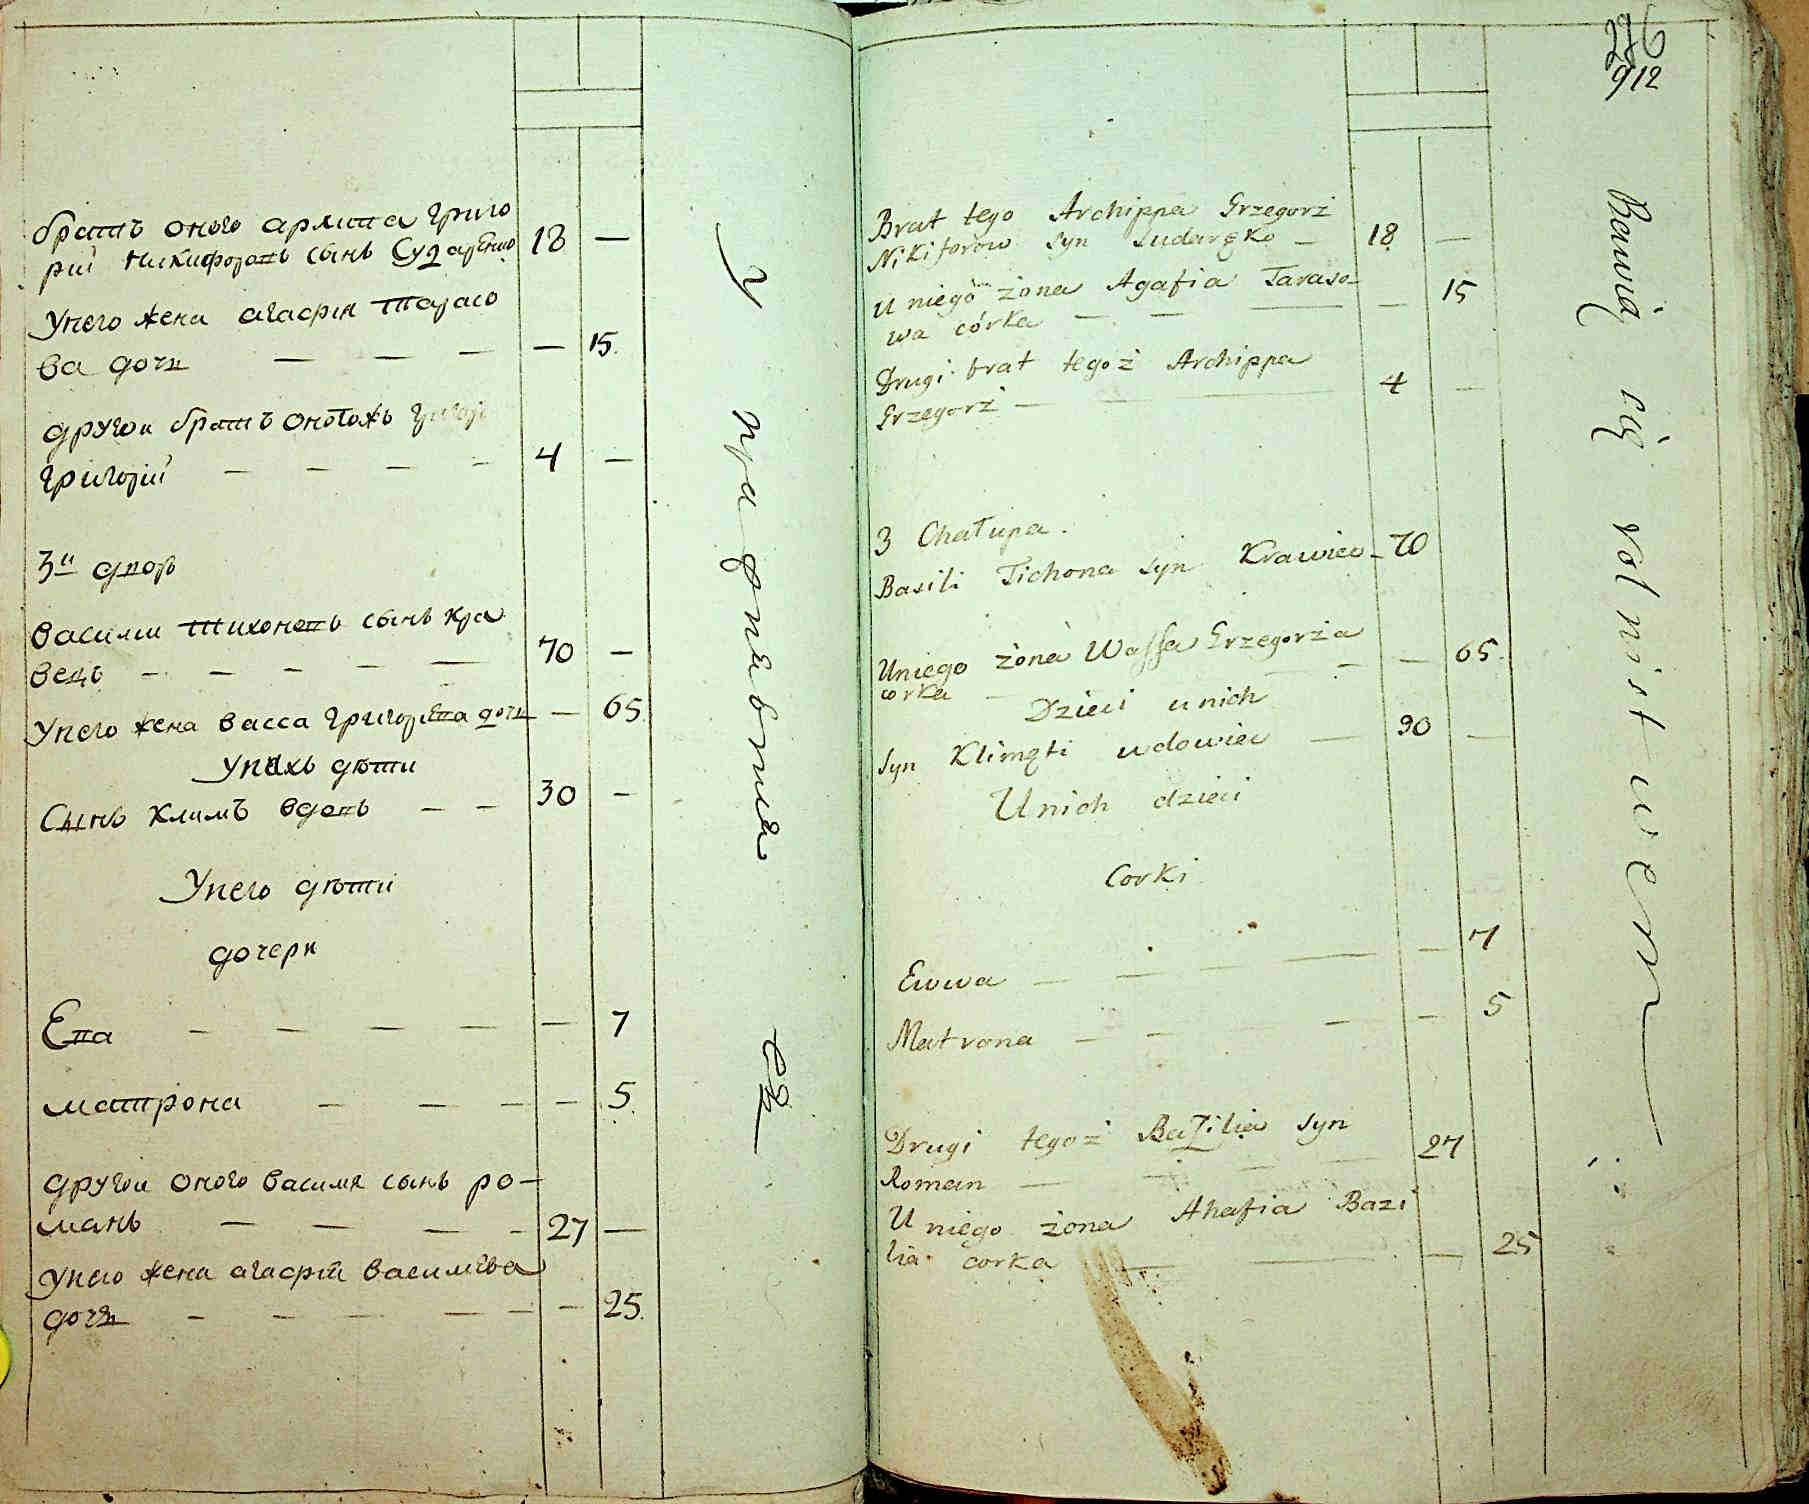 братъ оного архипа Григо
рий Никифоровъ сынъ Сударенко
18 —
У него жена агафия тарасо
ва дочь — — — — 15.
другои братъ оногожъ
григорий — — — — 4 —
3й дворъ
василии тихоновъ сынъ кра
вецъ — — — — — 70 —
У него жена васса григорьева дочь — 65
У нихъ дѣти
Сынъ климъ вдовъ — — 30 —
У него дѣти
дочери
Ева — — — — — — 7
матрона — — — — — 5.
другои оного василия сынъ ро-
манъ — — — — 27 —
У него жена агафия васильева
дочь — — — — — — 25.
У
276
912
Brat tego Archippa Grzegorz
Nikiforow syn Sudaręko — 18 —
U niego żona Agafia Taraso-
wa córka — — — — 15
Drugi brat tegoż Archippa
Grzegorz — — — 4 —
3 Chałupa.
Basili Tichona syn Krawiec - 70
Uniego żona Wassa Grzegorza
corka — — — 65.
Dzieci unich
Syn Klimęti wdowiec — 30 —
Unich dzieci
Corki
Ewwa — — — — — 7
Matrona — — — — 5
Drugi tegoż Bazilia syn
Roman — — — — 27
U niego żona Ahafia Bazi
lia corka — — — 25
Bawią się rolnistwem